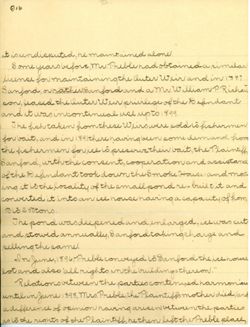 it is undisputed, he maintained alone.
Some years before Mr. Preble had obtained a similar
license for maintaining the Outer Weir and in 1897
Sanford, or rather Sanford and a Mr. William P. 
son, leased the Outer Weir privilege of the Defendant
and it was continual use up to 1899.
The fish taken from these Weirs were sold to fishermen
for bait, and in 1893 there having been some demand from
the fishermen for ice to preserve their bait, the Plaintiff,
Sanford, with the consent, cooperation and assistance
of the Defendant took down the Smoke house and mov-
ing it to the locality of the small pond re-built it and
converted it into an ice house having a capacity of from
tons.
The pond was deepened and enlarged, ice was cut
and stored annually, Sanford taking charge and
selling the same.
In June, 1896 Preble conveyed to Sanford the ice house
lot and also "all rights in the buildings thereon."
Relations between the parties continued harmonious
until in June 1898, Mrs. Preble, the Plaintiff's mother died and
a difference of opinion having arisen between the parties
as to the rights of the Plaintiff, he then left the Preble place